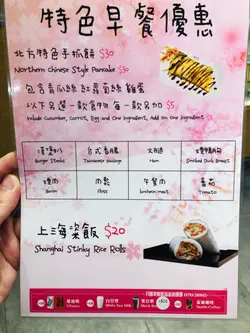 特色早餐優惠
北方特色手抓餅 $30
Northern Chinese Style Pancake $30
包含青瓜絲 紅蘿蔔絲 雞蛋
以下另選一款食物 每一款另加 $5
Include Cucumber, Carrot, Egg and One Ingredient, Add on One Ingredient $5
漢堡扒 台式香腸 火腿 煙鴨胸
Burger Steaks Taiwanese Sausage Ham Smoked Duck Breast
煙肉 肉鬆 午餐肉 蕃茄
Bacon Floss luncheon meat Tomato
上海粢飯 $20
Shanghai Stinky Rice Rolls